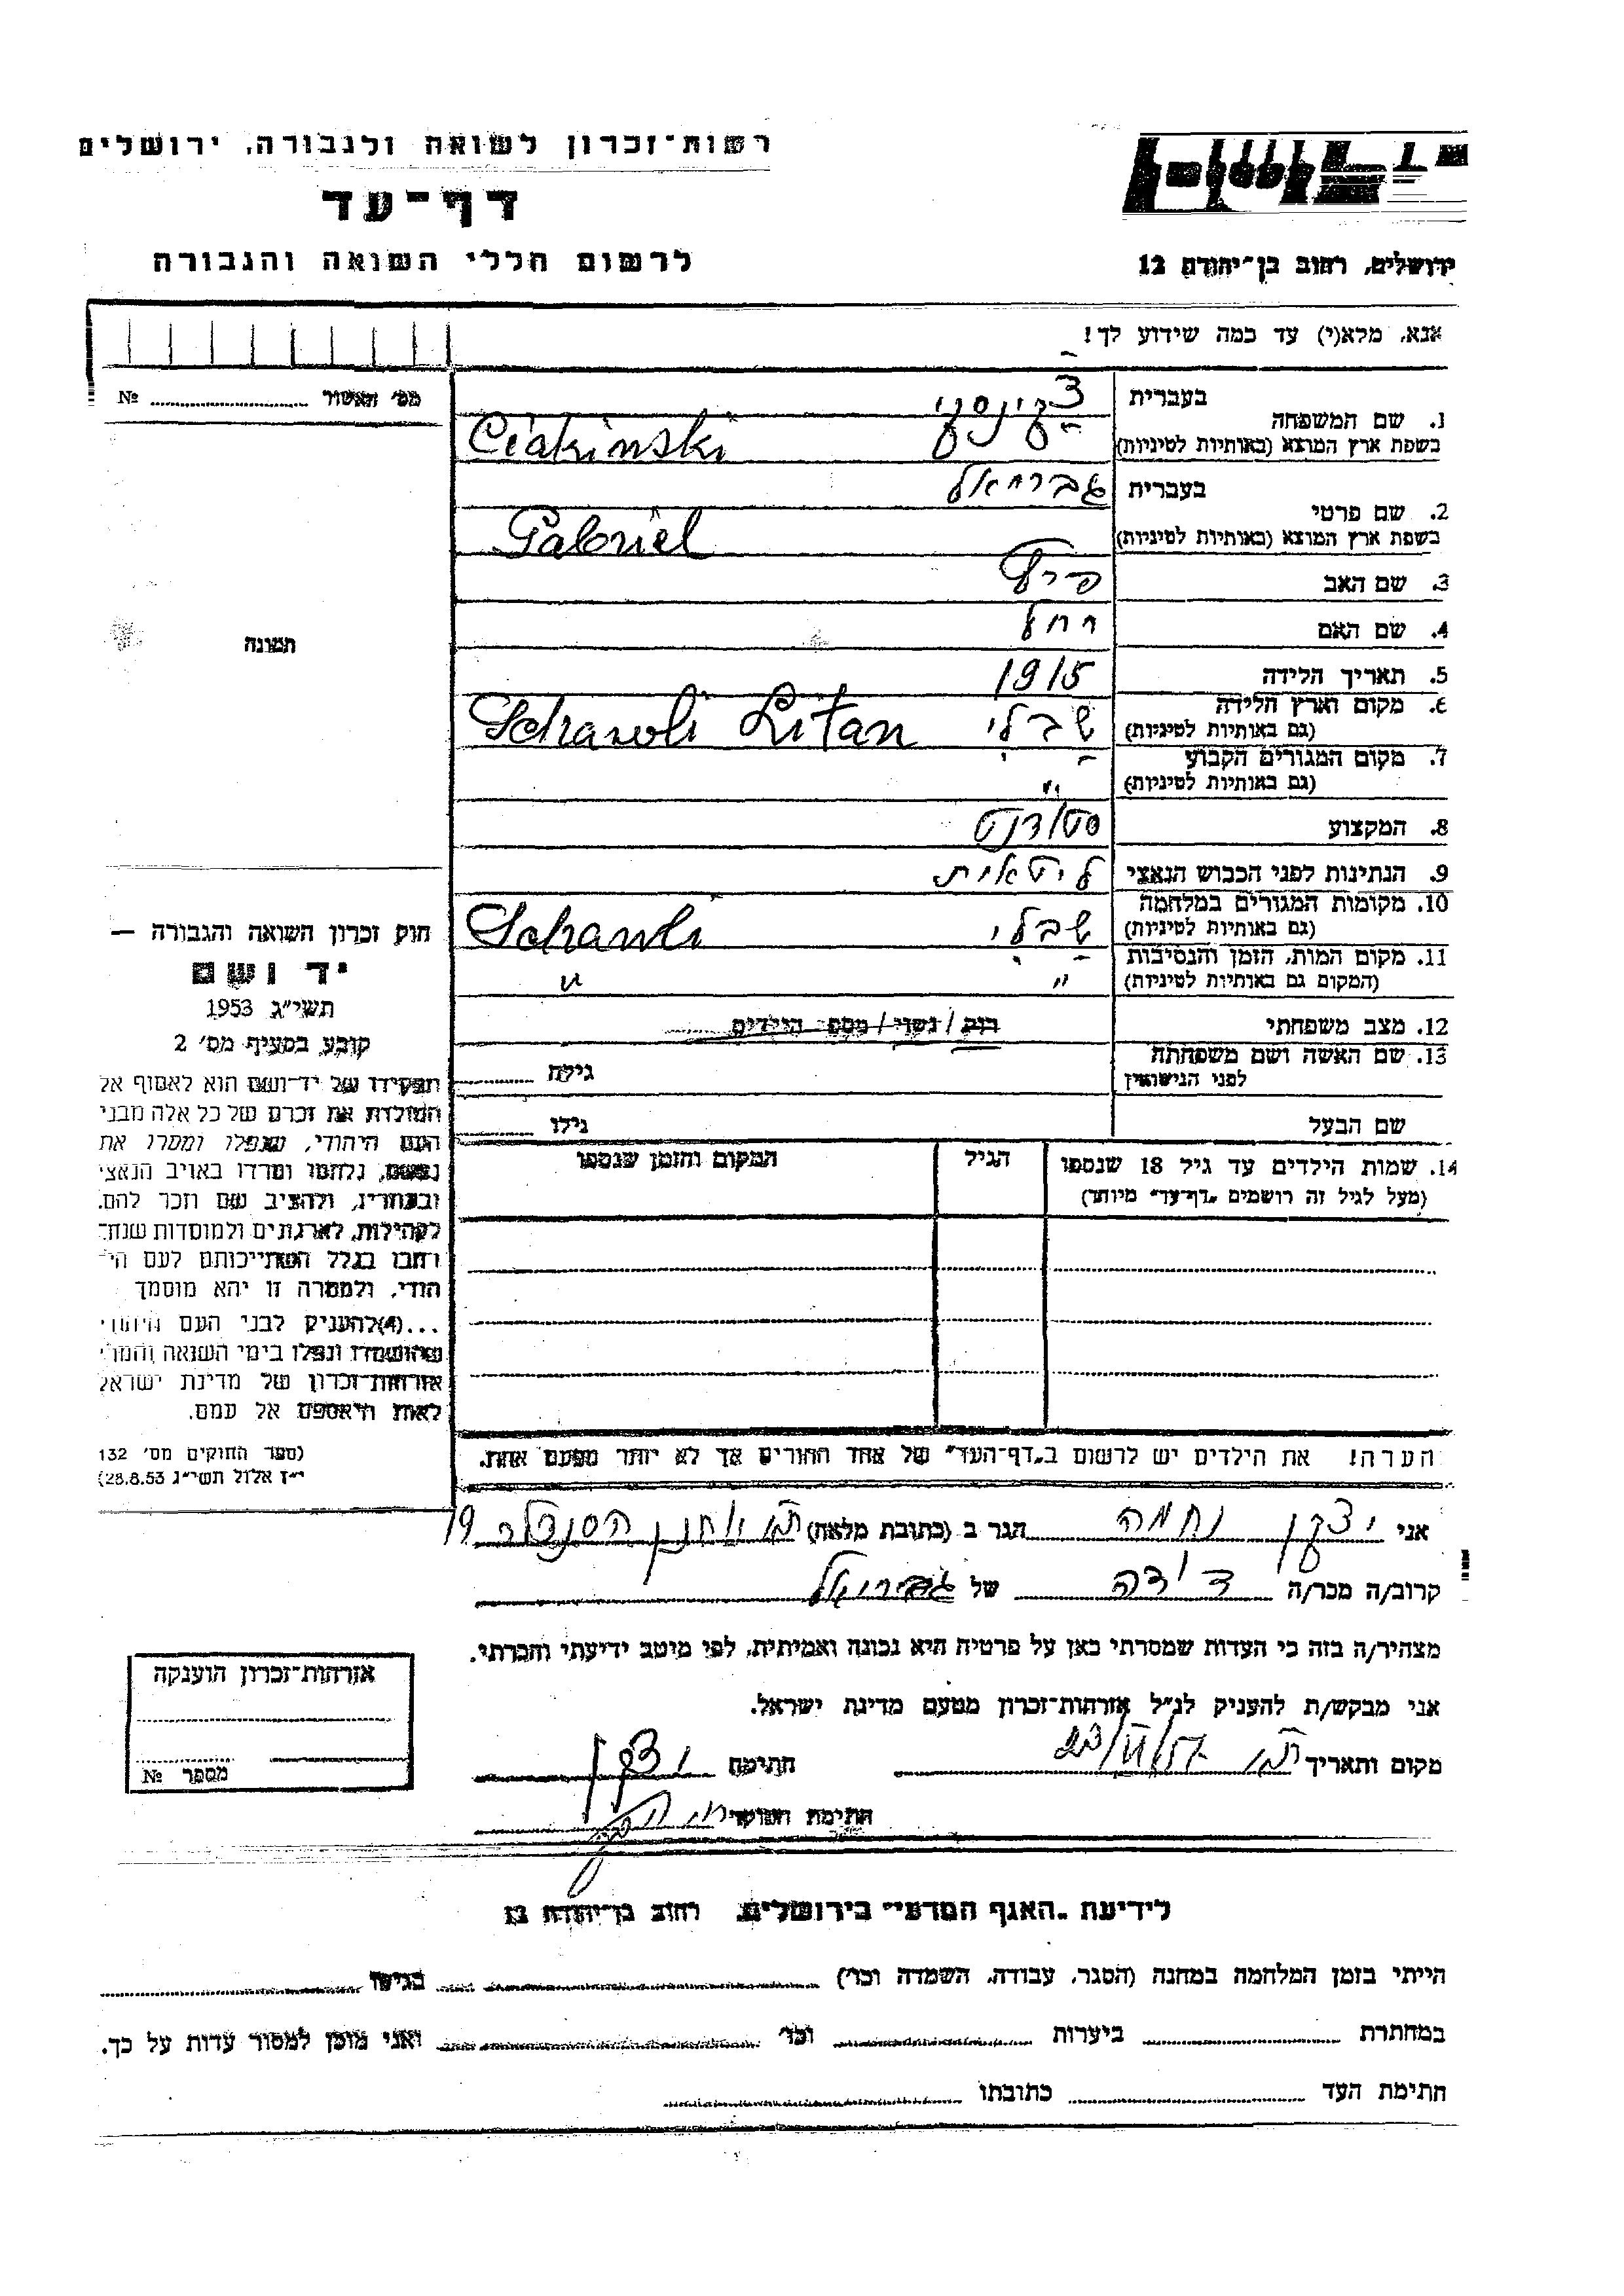 רשות־זכרון לשואה ולגבורה, ירושלים
דף־עד
לרשום חללי השואה והגבורה
ירושלים, רחוב בן־יהודה 12
אנא, מלא(י) עד כמה שידוע לך!
מס' האשור ___ №
1. שם המשפחה
בעברית
בשפת ארץ המוצא (באותיות לטיניות) Ciakinski
2. שם פרטי
בעברית גבריאל
בשפת ארץ המוצא (באותיות לטיניות) Gabriel
3. שם האב
4. שם האם רחל
5. תאריך הלידה 1915
6. מקום וארץ הלידה
(גם באותיות לטיניות) שבלי Schawli Litan
7. מקום המגורים הקבוע
(גם באותיות לטיניות) "
8. המקצוע סטודנט
9. הנתינות לפני הכבוש הנאצי ליטאית
10. מקומות המגורים במלחמה
(גם באותיות לטיניות) שבלי Schawli
11. מקום המות, הזמן והנסיבות
(המקום גם באותיות לטיניות) " "
12. מצב משפחתי רווק / נשוי / מספר הילדים
13. שם האשה ושם משפחתה
לפני הנישואין גילה
שם הבעל גילו
14. שמות הילדים עד גיל 18 שנספו
(מעל לגיל זה רושמים „דף־עד" מיוחד)
הגיל
המקום והזמן שנספו
הערה! את הילדים יש לרשום ב„דף־העד" של אחד ההורים אך לא יותר מפעם אחת.
תמונה
חוק זכרון השואה והגבורה —
יד ושם
תשי"ג 1953
קובע בסעיף מס' 2
תפקידו של יד־ושם הוא לאסוף אל
המולדת את זכרם של כל אלה מבני
העם היהודי, שנפלו ומסרו את
נפשם, נלחמו ומרדו באויב הנאצי
ובעוזריו, ולהציב שם וזכר להם,
לקהילות, לארגונים ולמוסדות שנח־
רבו בגלל השתייכותם לעם הי־
הודי, ולמטרה זו יהא מוסמך
...(4) להעניק לבני העם היהודי
שהושמדו ונפלו בימי השואה והמרי
אזרחות־זכרון של מדינת ישראל
לאות היאספם אל עמם.
(ספר החוקים מס' 132
י"ז אלול תשי"ג 28.8.53)
אני יצקן נחמה הגר ב (כתובת מלאה) ת"א יוחנן הסנדלר 19
קרוב/ה מכר/ה דודה של גבריאל
מצהיר/ה בזה כי העדות שמסרתי כאן על פרטיה היא נכונה ואמיתית, לפי מיטב ידיעתי והכרתי.
אני מבקש/ת להעניק לנ"ל אזרחות־זכרון מטעם מדינת ישראל.
מקום ותאריך ת"א 23/VI/57 חתימה יצקן
חתימת הפוקד
אזרחות־זכרון הוענקה
מספר №
לידיעת „האגף המדעי" בירושלים, רחוב בן־יהודה 12
הייתי בזמן המלחמה במחנה (הסגר, עבודה, השמדה וכו') ___ בגיטו ___
במחתרת ___ ביערות ___ וכו' ___ ואני מוכן למסור עדות על כך.
חתימת העד ___ כתובתו ___